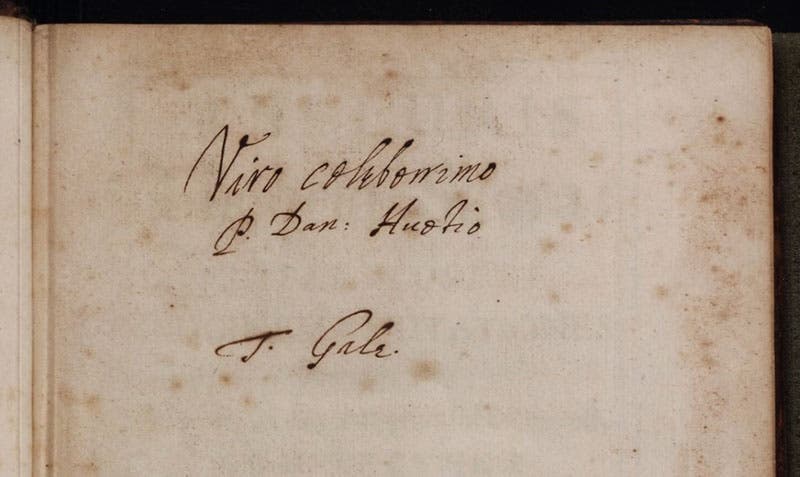 Viro celeberrimo
P. Dan: Huetio
T. Gale.